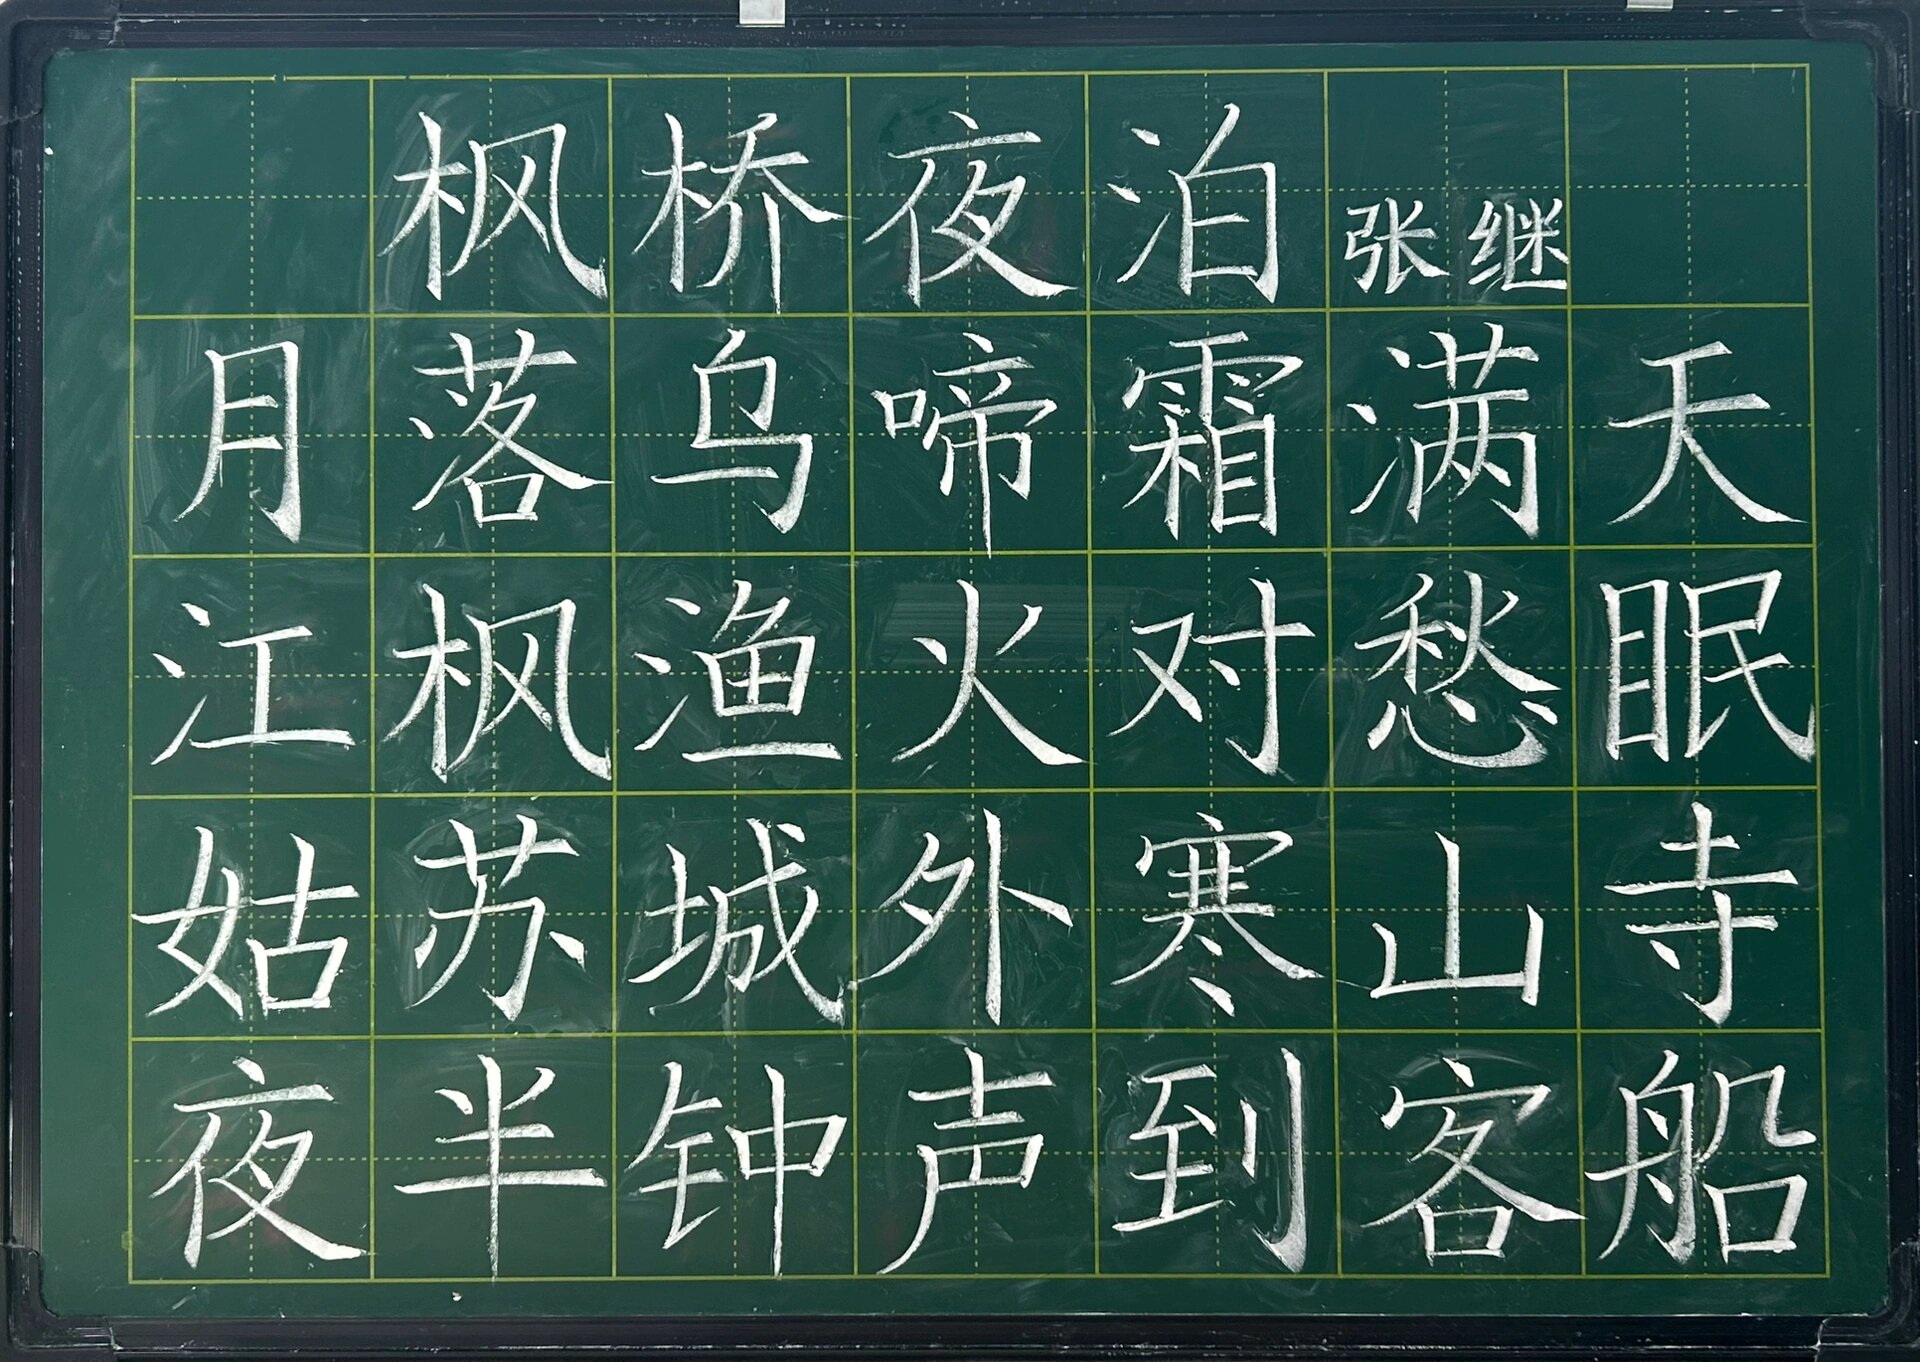 枫桥夜泊 张继
月落乌啼霜满天
江枫渔火对愁眠
姑苏城外寒山寺
夜半钟声到客船